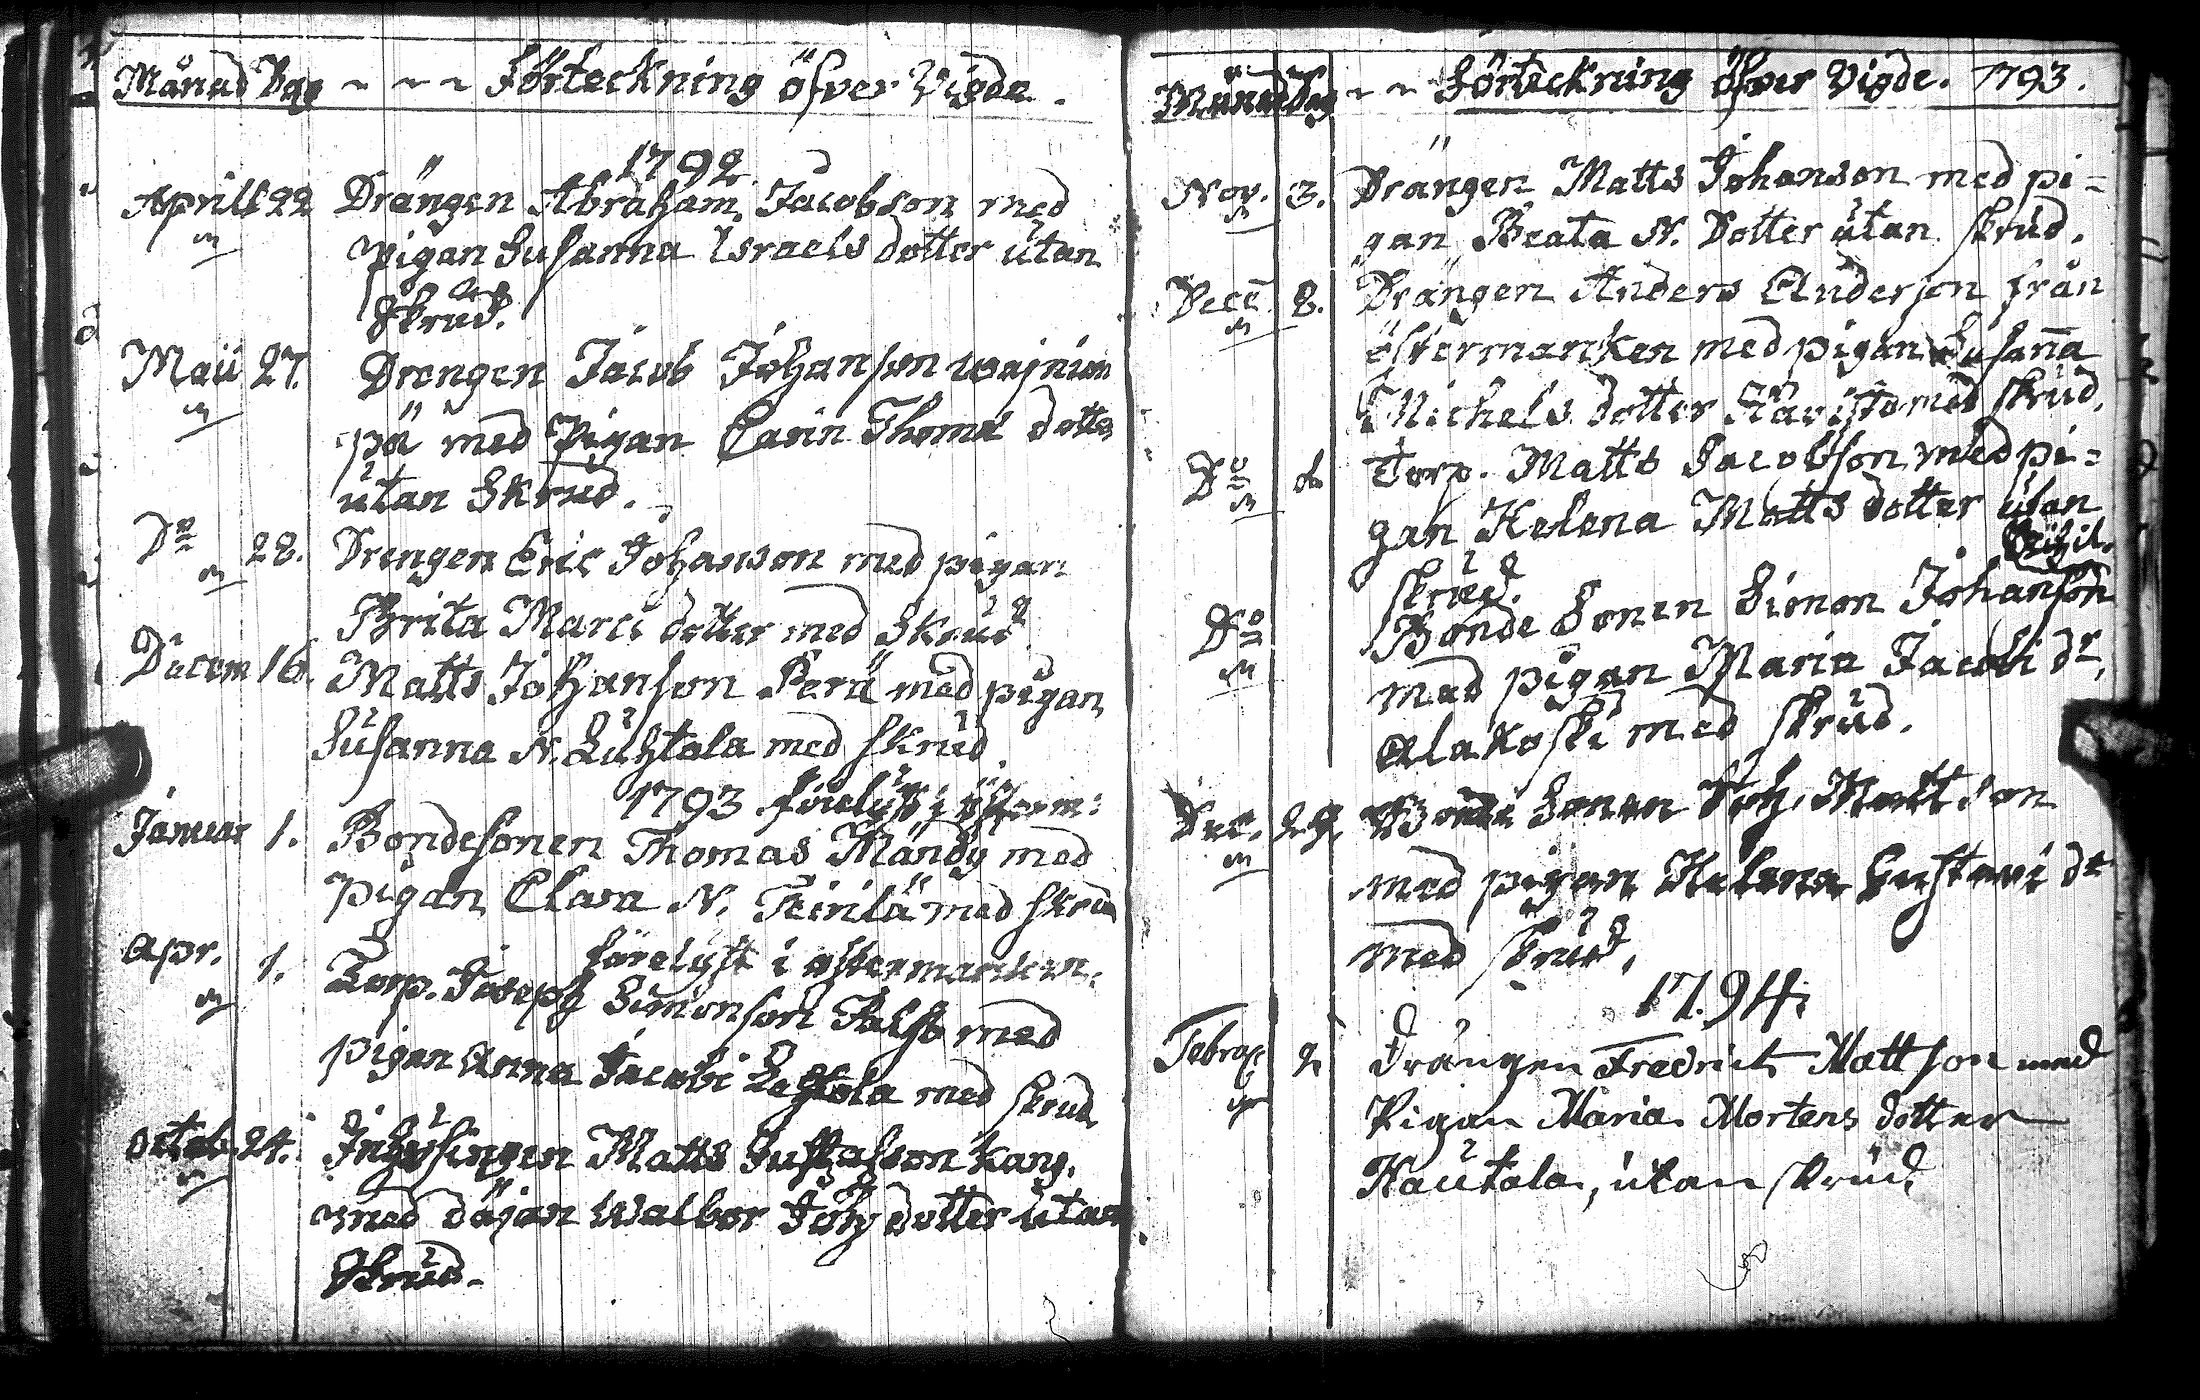 Månad Dag ~ ~ ~ Förteckning öfver Vigde.
1792
Aprill 22 Drängen Abraham Jacobson med
pigan Susanna Israels dotter utan
Skrud.
Maii 27. Drengen Jacob Johanson
på med Pigan Carin Thomæ dotter
utan Skrud.
Do 28. Drengen Eric Johanson med pigan
Brita Marci dotter med Skrud
Decem 16. Matts Johanson Perü med pigan
Susanna N. Luhtala med skrud
1793 förelyst i österm:
Januar 1. Bondesonen Thomas Mändy med
pigan Clara N. Teirilä med skrud
förelyst i östermarcken.
Apr. 1. Torp. Joseph Simonson Palso med
pigan Anna Jacobi med skrud
Octob. 24. Inhysingen Matts Gustafson Kang.
med däjan Walbor Joh dotter utan
Skrud.
Månad Dag ~ ~ Förteckning öfver Vigde. 1793.
Nov. 3. Drängen Matts Johanson med pi=
gan Beata N. Dotter utan skrud.
Dece 8. Drängen Anders Anderson från
östermarcken med pigan Susana
Michels dotter med skrud.
Do d Torp. Matts Jacobson med pi=
gan Helena Matts dotter utan
skrud.
Do Bonde Sonen Simon Johanson
med pigan Maria Jacobi dr.
Alakoski med skrud.
Dec. 29. Bonde Sonen Joh. Mattson
med pigan Helena Gustavi dr
med skrud.
1794.
Febrar: 2 Drängen Fredrich Mattson med
Pigan Maria Mortens dotter
Kautala, utan skrud